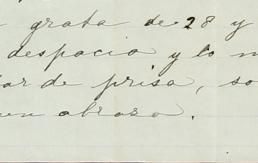 grata de 28 y
despacio y lo
de prisa, so
un abrazo.